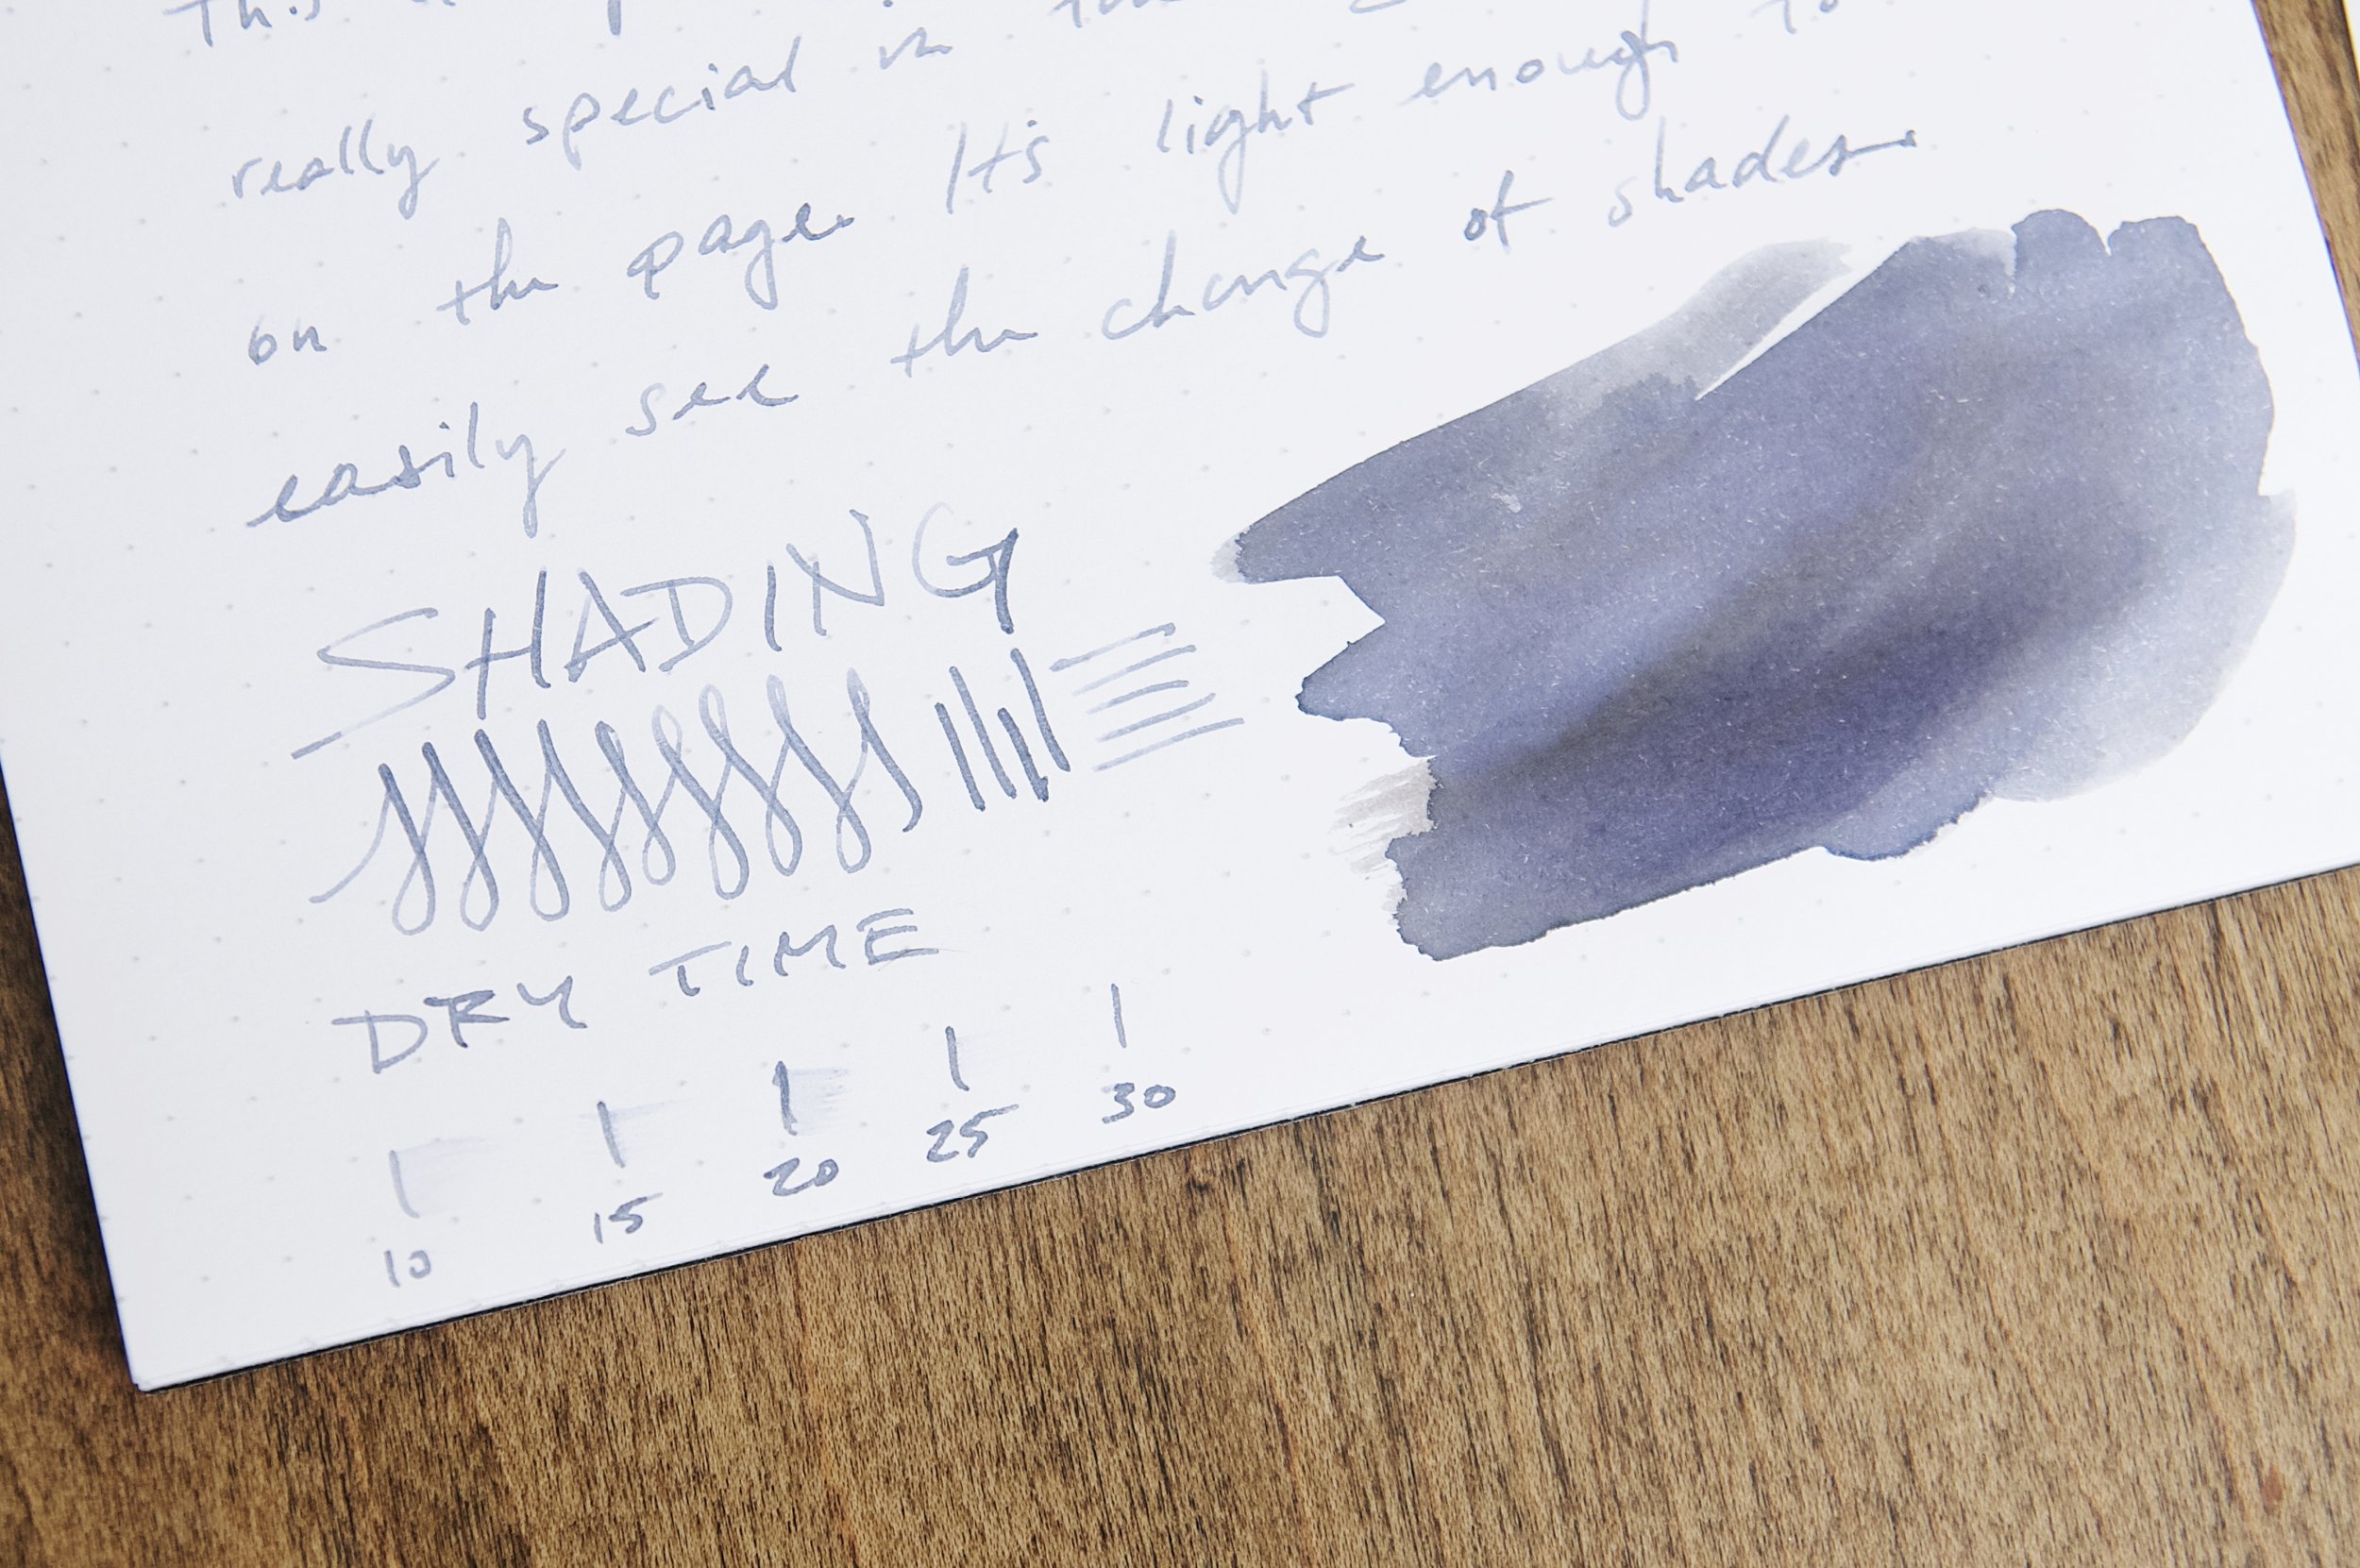 This
really special in
on the page. It's light enough to
easily see the change of shades.
SHADING
DRY TIME
10 15 20 25 30